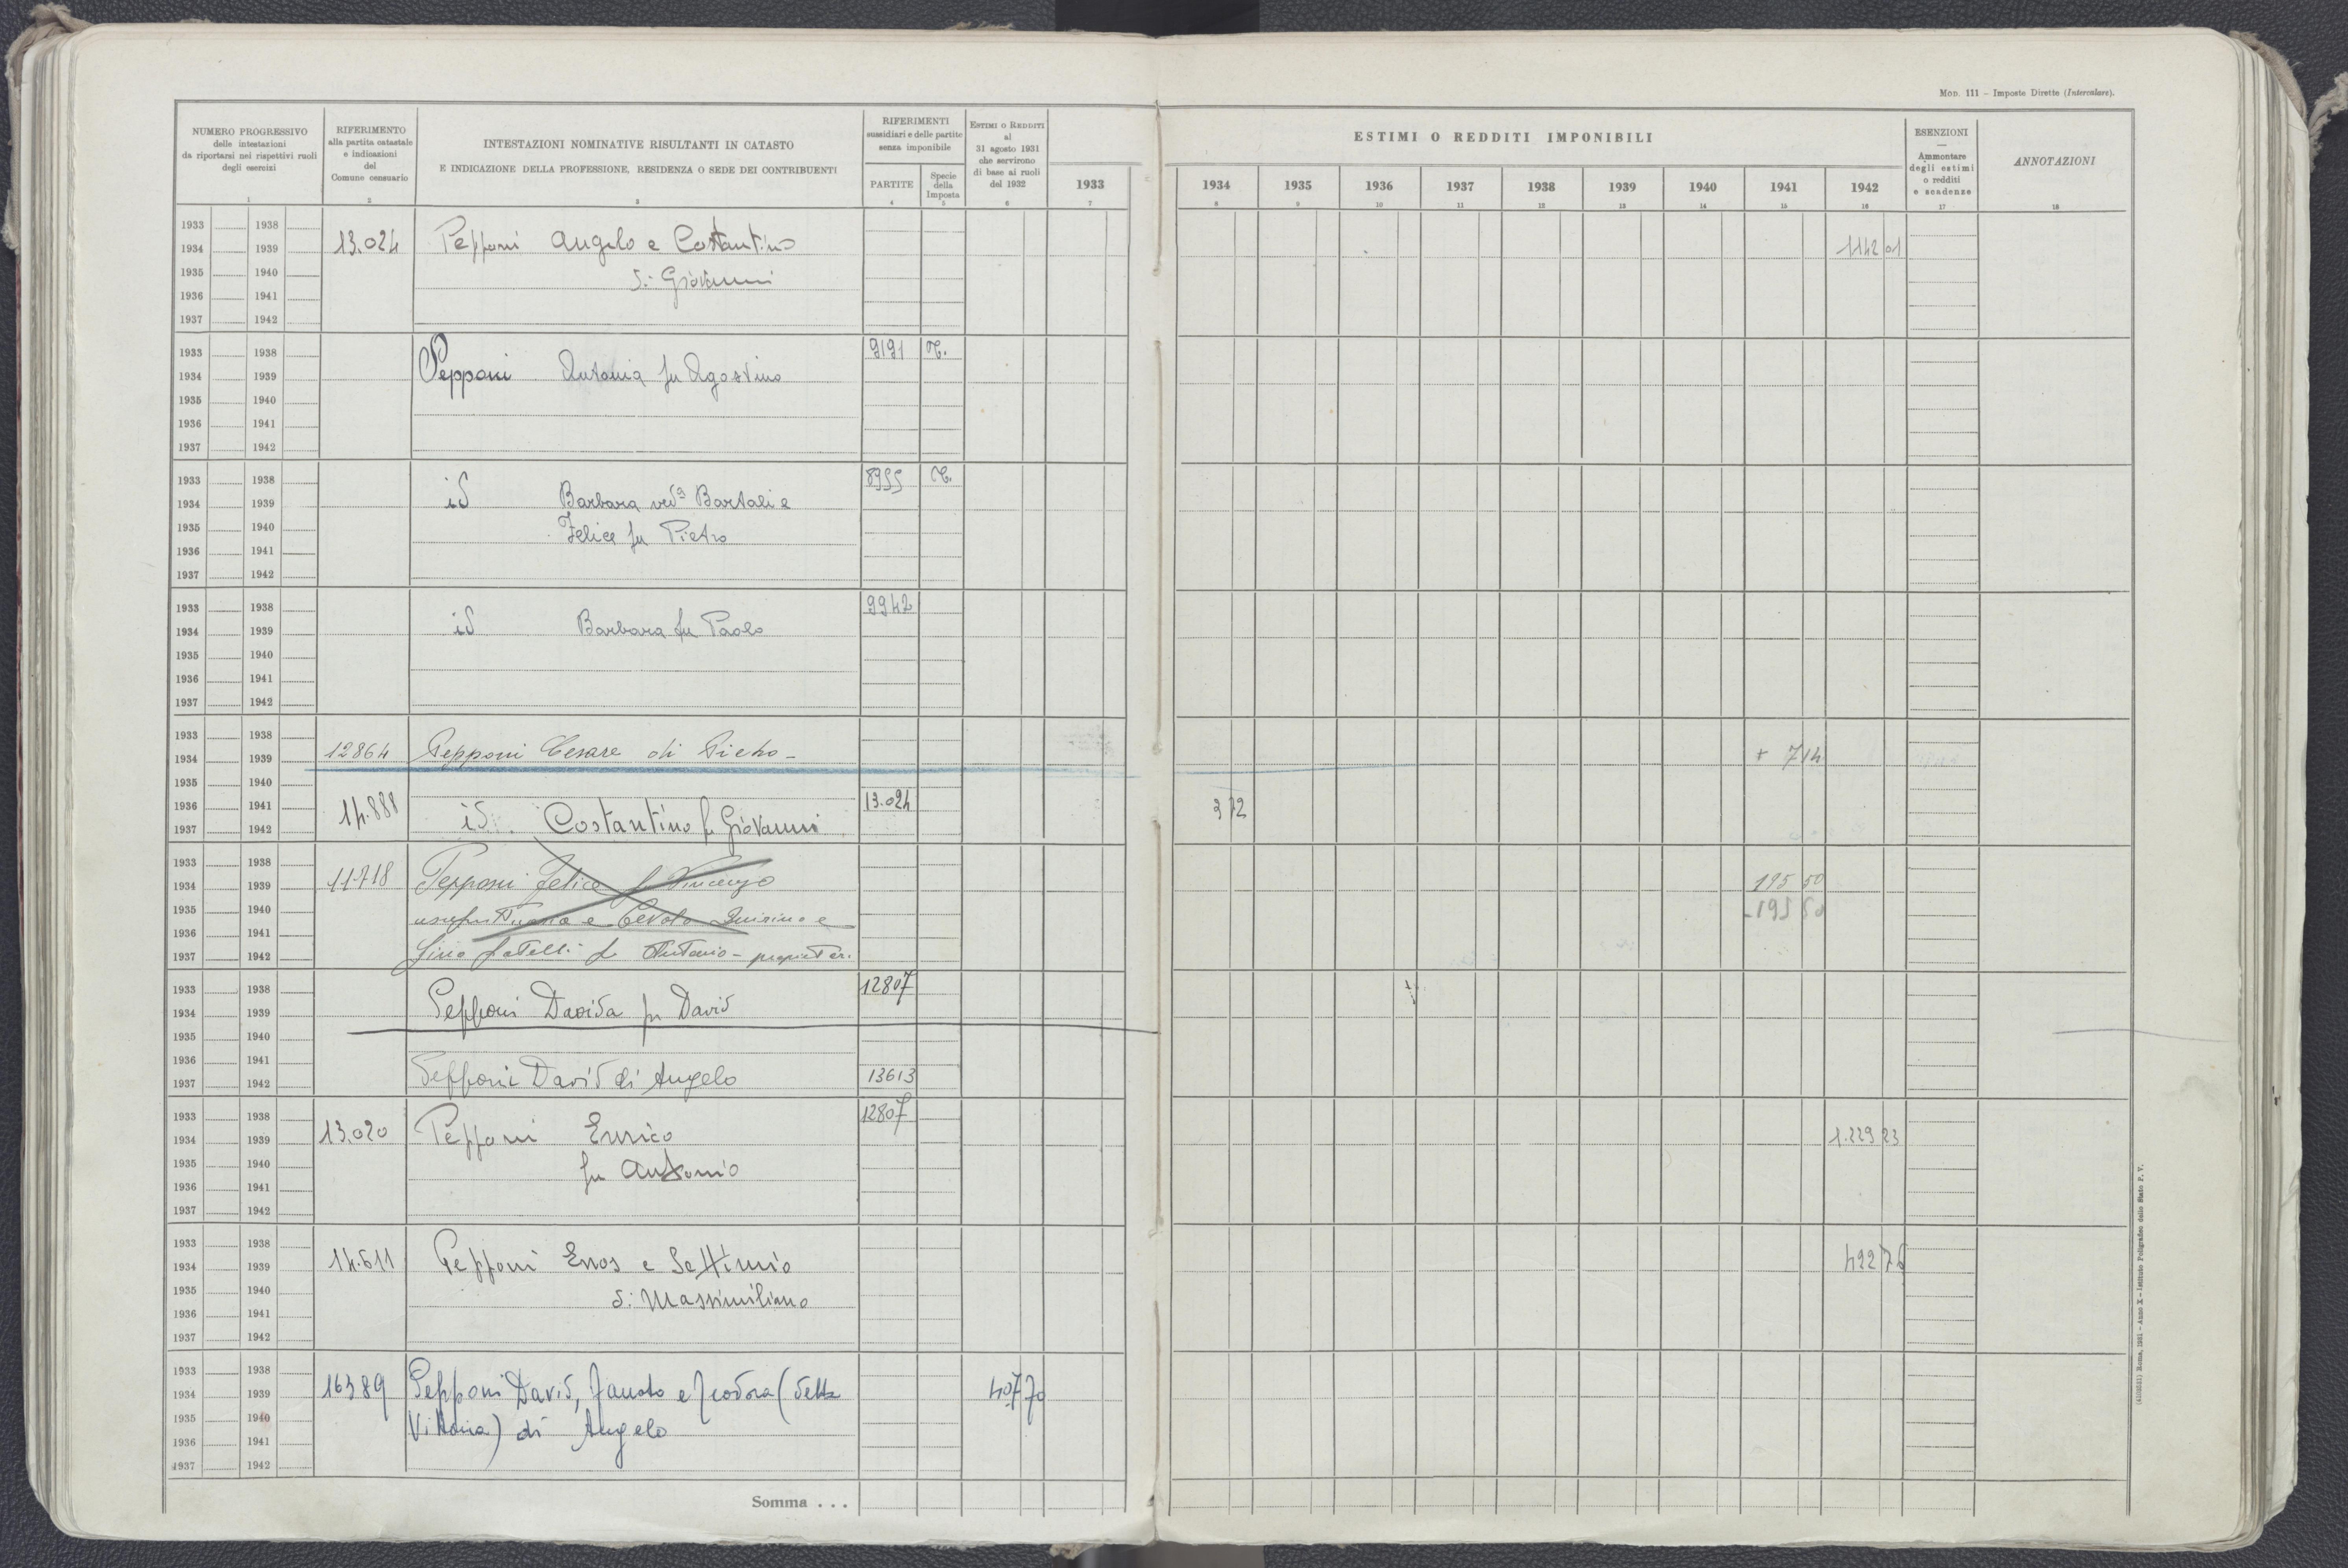 MOD. 111 - Imposte Dirette (Intercalare).
NUMERO PROGRESSIVO
delle intestazioni
da riportarsi nei rispettivi ruoli
degli esercizi
1
RIFERIMENTO
alla partita catastale
e indicazioni
del
Comune censuario
2
INTESTAZIONI NOMINATIVE RISULTANTI IN CATASTO
E INDICAZIONE DELLA PROFESSIONE, RESIDENZA O SEDE DEI CONTRIBUENTI
3
RIFERIMENTI
sussidiari e delle partite
senza imponibile
PARTITE
4
Specie
della
Imposta
5
ESTIMI O REDDITI
al
31 agosto 1931
che servirono
di base ai ruoli
del 1932
6
1933
7
ESTIMI O REDDITI IMPONIBILI
1934 1935 1936 1937 1938 1939 1940 1941 1942
8 9 10 11 12 13 14 15 16
ESENZIONI
Ammontare
degli estimi
o redditi
e scadenze
17
ANNOTAZIONI
18
1933 1938
1934 1939 13.024 Pepponi Angelo e Costantino 1142 01
1935 1940 di Giovanni
1936 1941
1937 1942
1933 1938 9191 T.
1934 1939 Pepponi Antonia fu Agostino
1935 1940
1936 1941
1937 1942
1933 1938 8955 T.
1934 1939 id Barbara ved.a Bartali e
1935 1940 Felice fu Pietro
1936 1941
1937 1942
1933 1938 9942
1934 1939 id Barbara fu Paolo
1935 1940
1936 1941
1937 1942
1933 1938
1934 1939 12864 Pepponi Cesare di Pietro - + 714
1935 1940
1936 1941 14.888 13.024 372
1937 1942 id. Costantino fu Giovanni
1933 1938
1934 1939 11718 Pepponi Felice fu Vincenzo 195 50
1935 1940 e Quirino e -195 50
1936 1941
1937 1942 Lino fratelli fu Antonio - proprietari
1933 1938 12807
1934 1939 Pepponi Davida fu David
1935 1940
1936 1941
1937 1942 Pepponi David di Angelo 13613
1933 1938 12807
1934 1939 13.020 Pepponi Enrico 1.229 23
1935 1940 fu Antonio
1936 1941
1937 1942
1933 1938
1934 1939 14.611 Pepponi Enos e Settimio 492 76
1935 1940 di Massimiliano
1936 1941
1937 1942
1933 1938
1934 1939 16389 Pepponi David, Fausto e Teodora (detta 407 70
1935 1940 Vittoria) di Angelo
1936 1941
1937 1942
Somma . . .
Roma, 1931 - Anno X - Istituto Poligrafico dello Stato P. V.